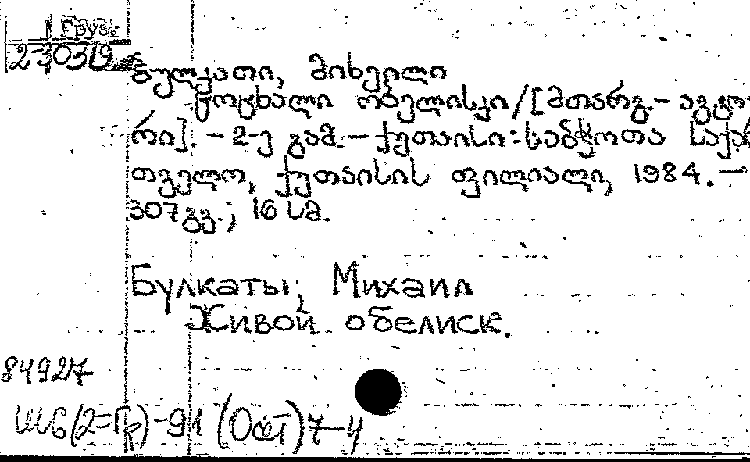 Груз.
2-30319
ბულკათი, მიხეილი
ცოცხალი ობელისკი/[მთარგ.- ავტო
რი]. - 2-ე გამ. - ქუთაისი: საბჭოთა საქარ
თველო, ქუთაისის ფილიალი, 1984. -
307 გვ.; 16 სმ.
Булкаты, Михаил
Живой обелиск.
84927
Ш6(2=Гр)-91 (Осет) 7-4